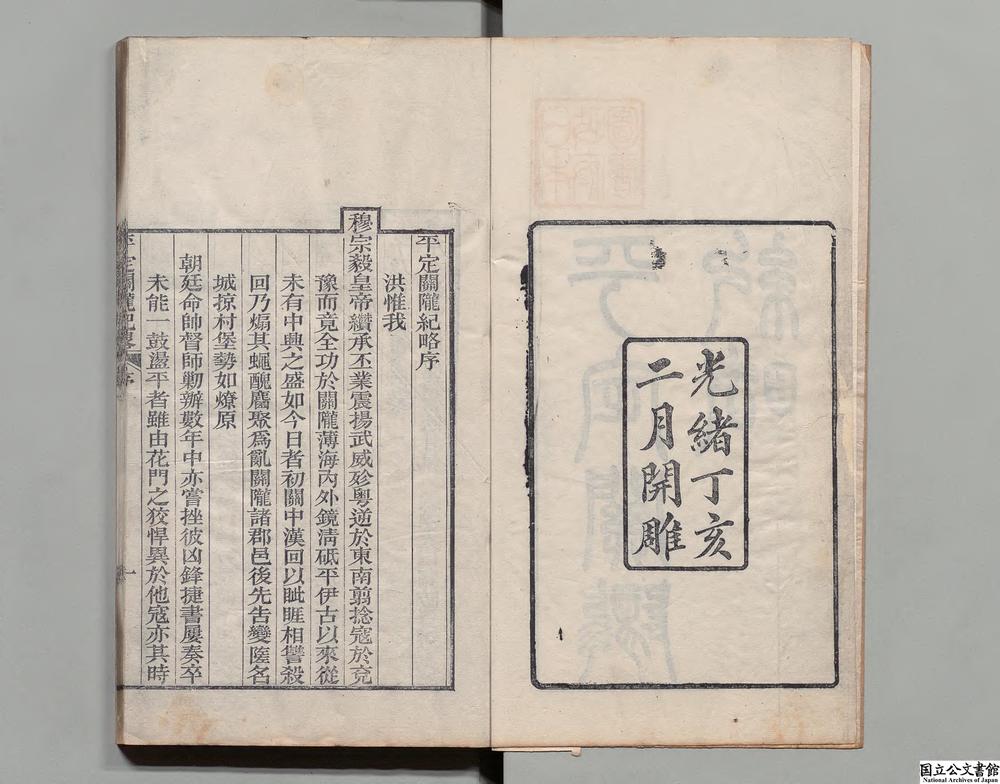 光緒丁亥
二月開雕
平定關隴紀略序
洪惟我
穆宗毅皇帝纘承丕業震揚武威殄粵逆於東南翦捻寇於兗
豫而竟全功於關隴薄海內外鏡淸砥平伊古以來從
未有中興之盛如今日者初關中漢回以眦睚相讐殺
回乃煽其蠅醜麕聚爲亂關隴諸郡邑後先告變隓名
城掠村堡勢如燎原
朝廷命帥督師勦辦數年中亦嘗挫彼凶鋒捷書屢奏卒
未能一鼓盪平者雖由花門之狡悍異於他寇亦其時
平定關隴紀略 序 一
国立公文書館
National Archives of Japan